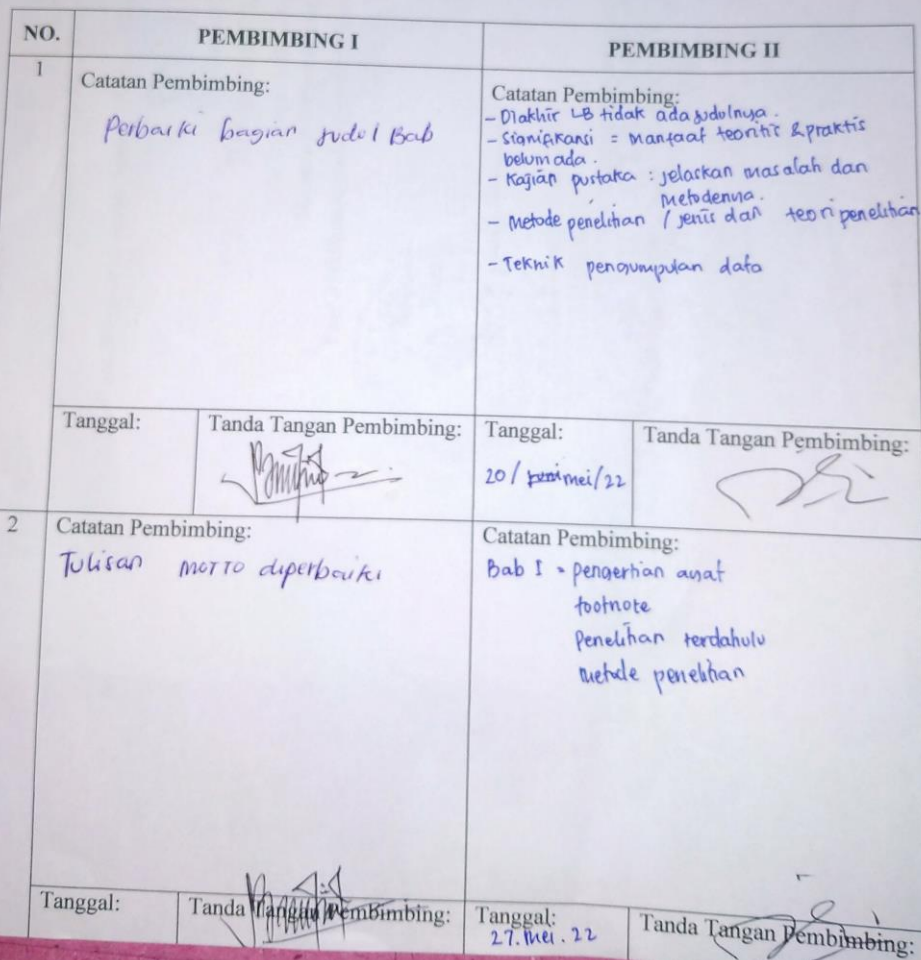 NO.
PEMBIMBING I
PEMBIMBING II
1
Catatan Pembimbing:
Perbaiki bagian judul Bab
Catatan Pembimbing:
- Diakhir LB tidak ada judulnya.
- Signifikansi = manfaat teoritis & praktis
belum ada.
- Kajian pustaka : jelaskan masalah dan
metodenya.
- Metode penelitian / jenis dan teori penelitian
- Teknik pengumpulan data
Tanggal:
Tanda Tangan Pembimbing:
Tanggal:
20/ mei/22
Tanda Tangan Pembimbing:
2
Catatan Pembimbing:
Tulisan MOTTO diperbaiki
Catatan Pembimbing:
Bab I = pengertian ayat
footnote
Penelitian terdahulu
metode penelitian
Tanggal:
Tanda Tangan Pembimbing:
Tanggal:
27. Mei. 22
Tanda Tangan Pembimbing: